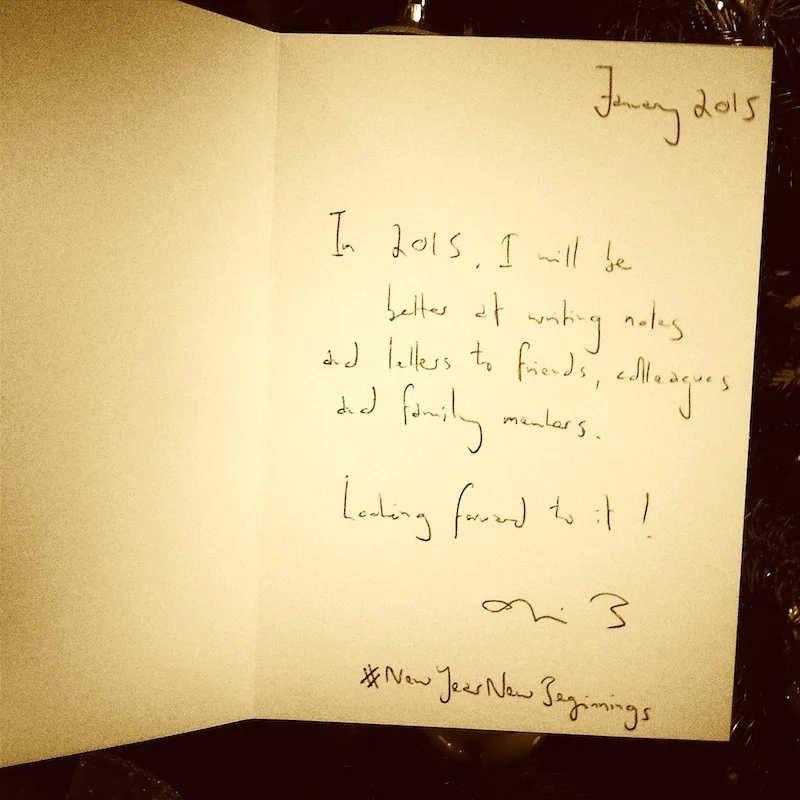 January 2015
In 2015, I will be
better at writing notes
and letters to friends, colleagues
and family members.
Looking forward to it!
B
#NewYearNewBeginnings